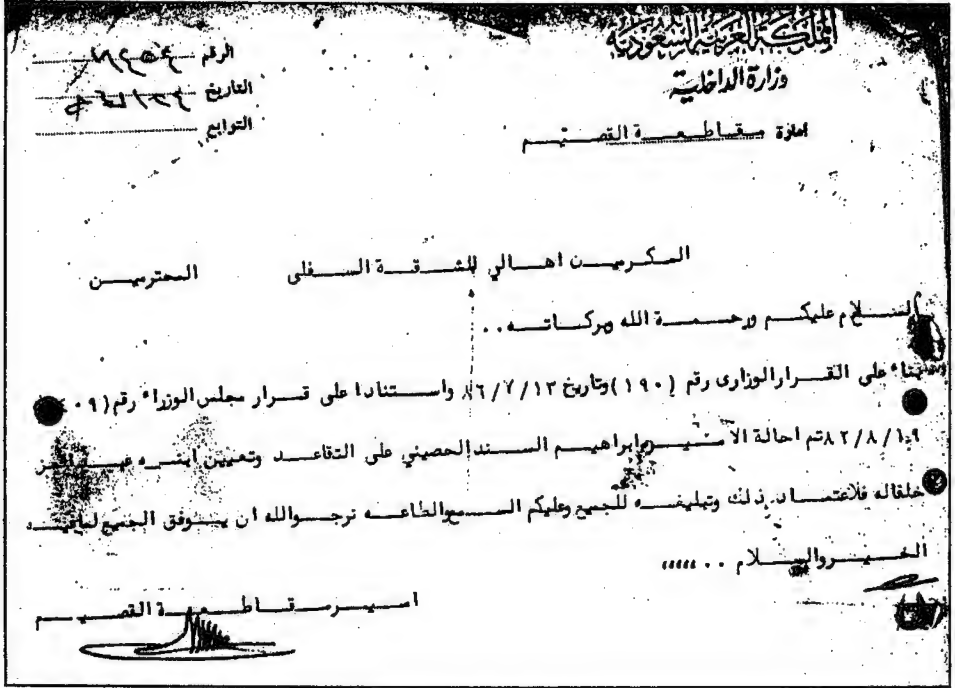 المملكة العربية السعودية
وزارة الداخلية
امارة مقاطعة القصيم
الرقم
التاريخ
التوابع
المكرمين اهالي للشقة السفلى المحترمين
السلام عليكم ورحمة الله وبركاته . .
بناء على القرار الوزارى رقم (١٩٠) وتاريخ ٨٦/٧/١٢ واستنادا على قرار مجلس الوزراء رقم
٨٢/٨/١٠٩ تم احالة الامير ابراهيم السند الحصيني على التقاعد وتعيين ابنه
خلفاله فلاعتماد ذلك وتبليغه للجميع وعليكم السمع والطاعه نرجوالله ان يوفق الجميع لمافيه
الخير والسلام . . ،،،،،
امير مقاطعة القصيم